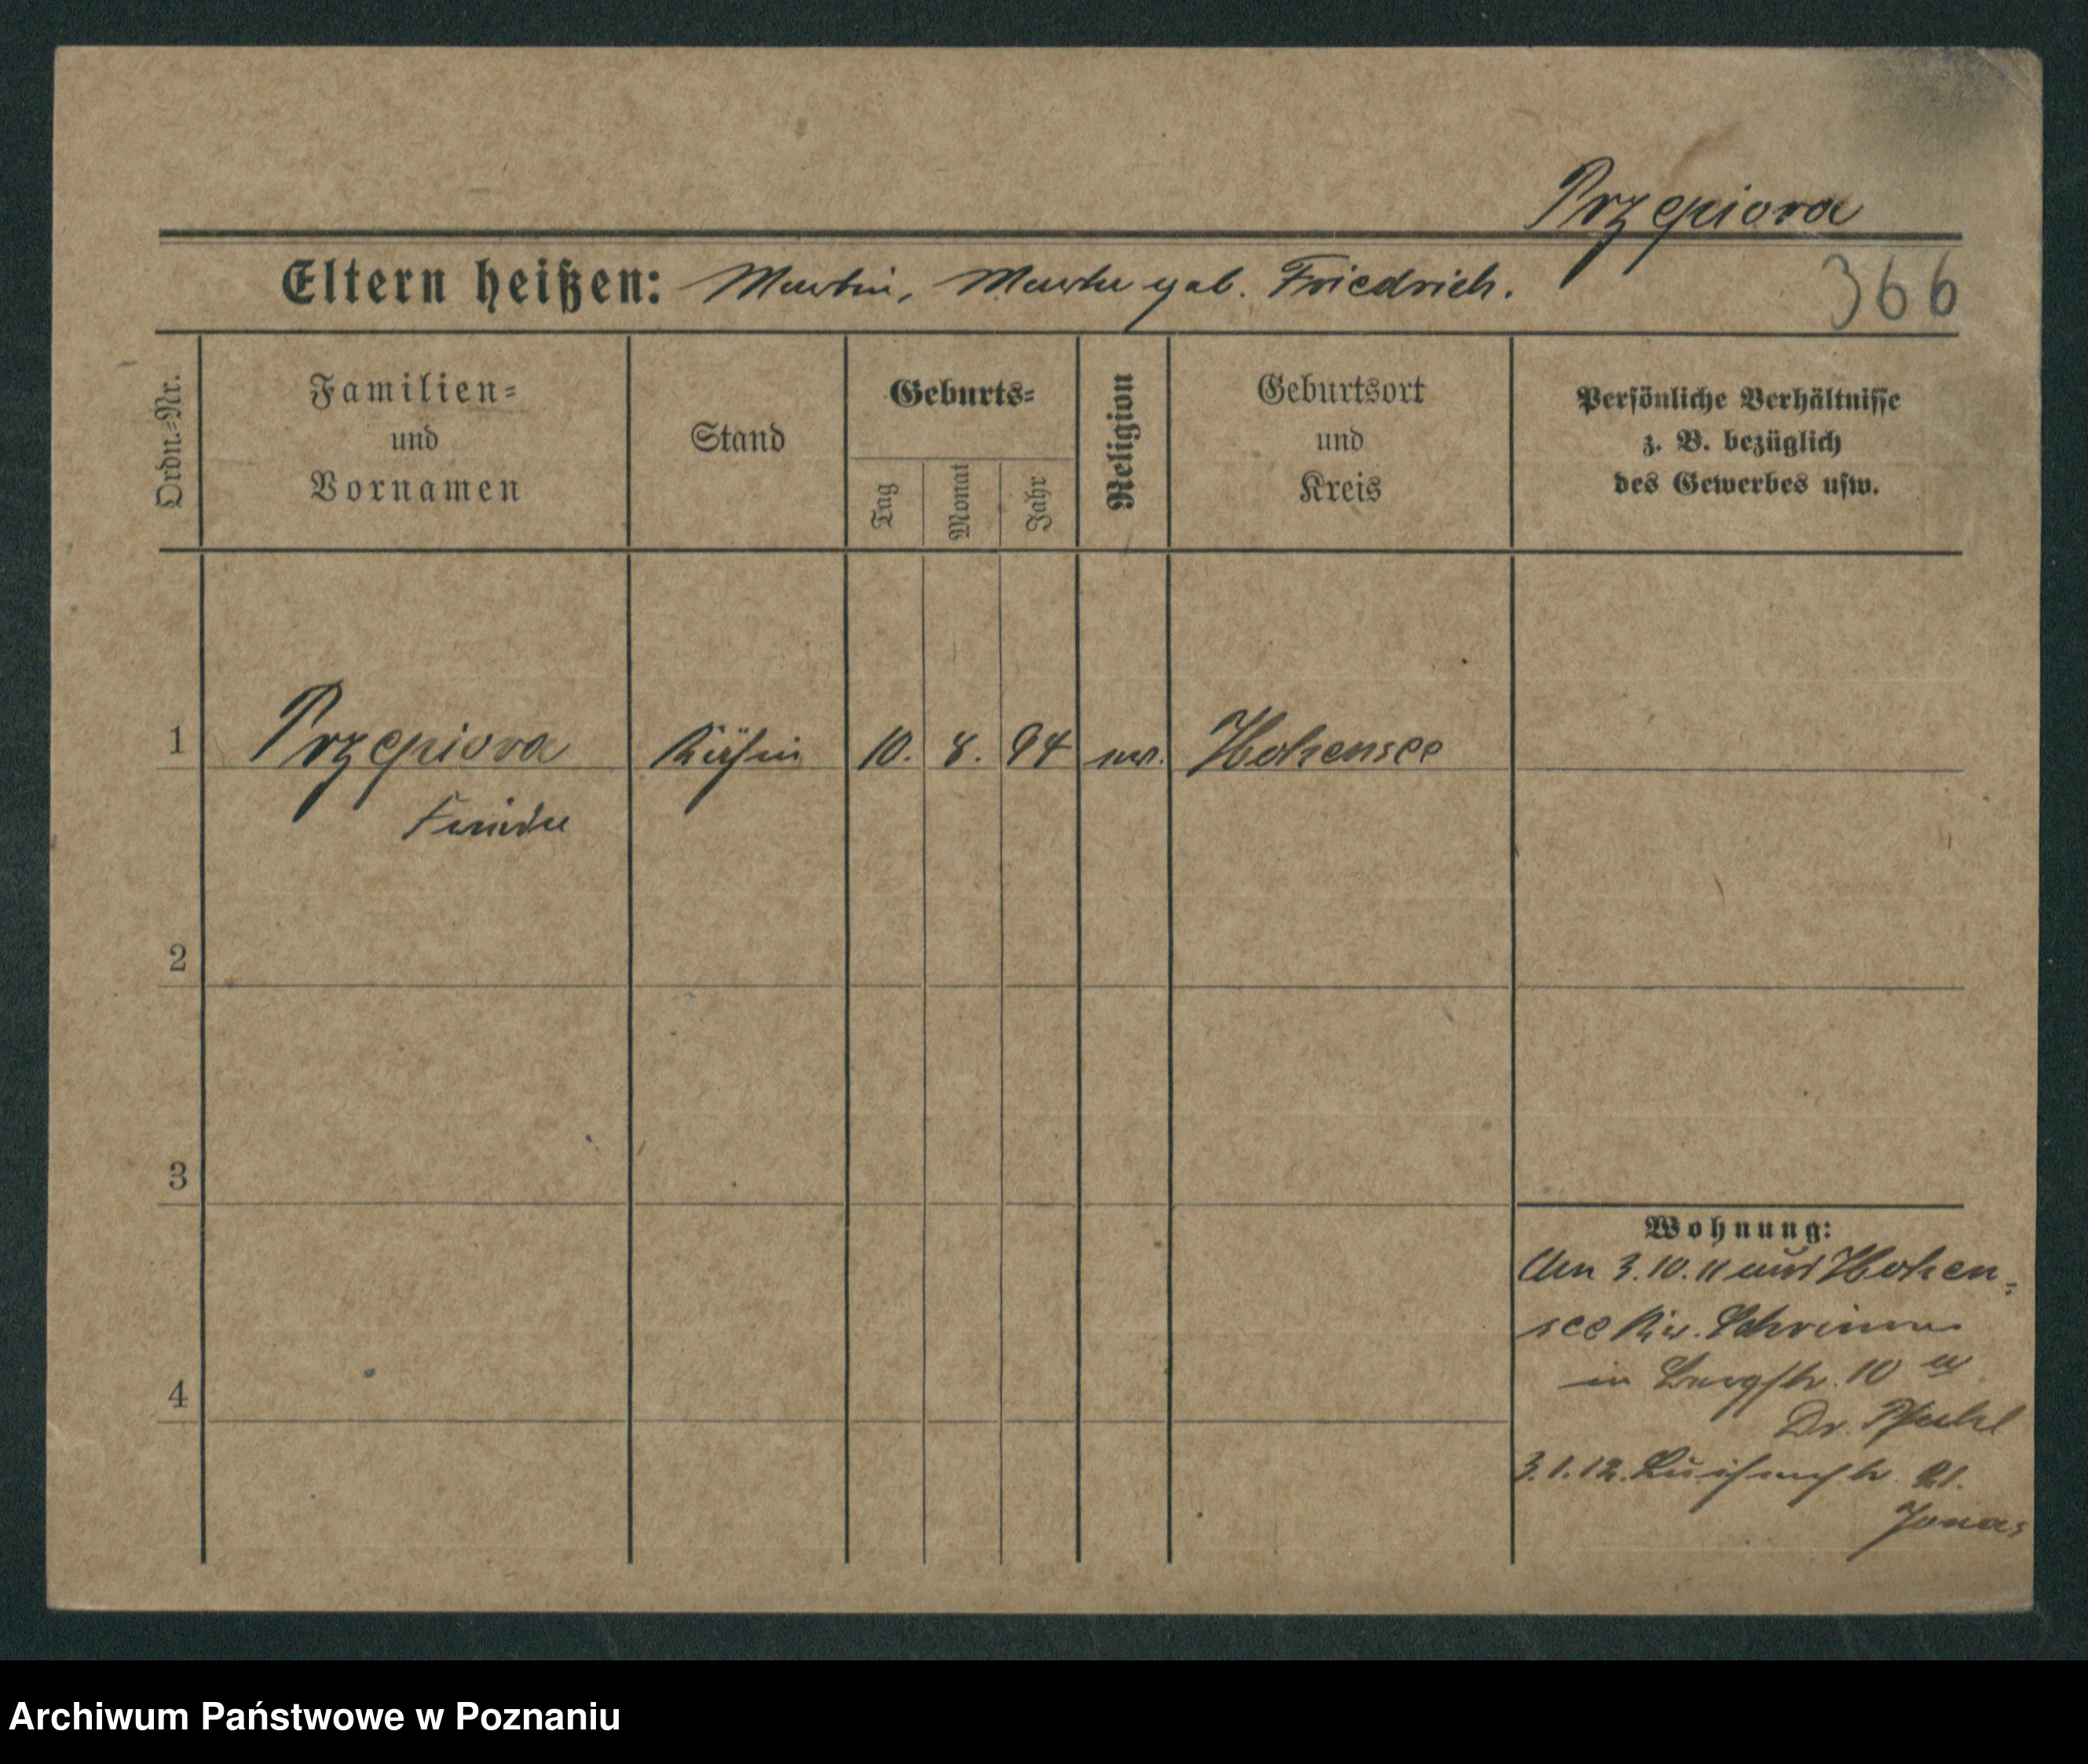 Przepiora
Eltern heißen: Martin, Martha geb. Friedrich.
366
Ordn.-Nr.
Familien-
und
Vornamen
Stand
Geburts-
Tag
Monat
Jahr
Religion
Geburtsort
und
Kreis
Persönliche Verhältnisse
z. B. bezüglich
des Gewerbes usw.
1 Przepiora Köchin 10. 8. 94 Hohensee
2
3
4
Wohnung:
Am 3.10.11 aus Hohen-
see Kr. Schrimm
in Bergstr. 10
Dr. Pfuhl
3.1.12. Luisenstr. 21.
Jonas
Archiwum Państwowe w Poznaniu